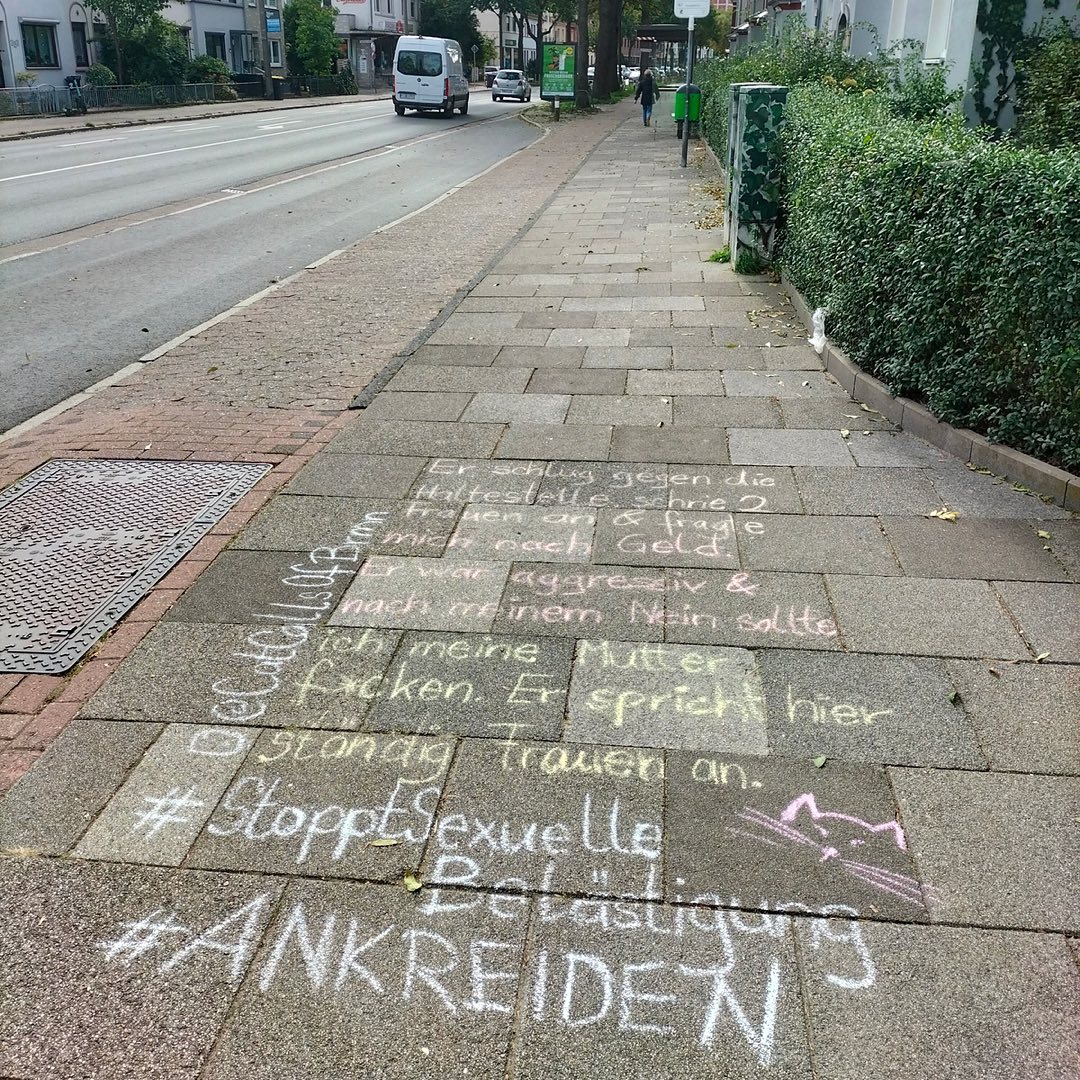 Er schlug gegen die
Haltestelle, schrie 2
Frauen an & fragte
mich nach Geld.
Er war aggressiv &
nach meinem Nein sollte
ich meine Mutter
ficken. Er spricht hier
ständig Frauen an.
#StopptSexuelle
Belästigung
#ANKREIDEN
@CatcallsOfBrmn